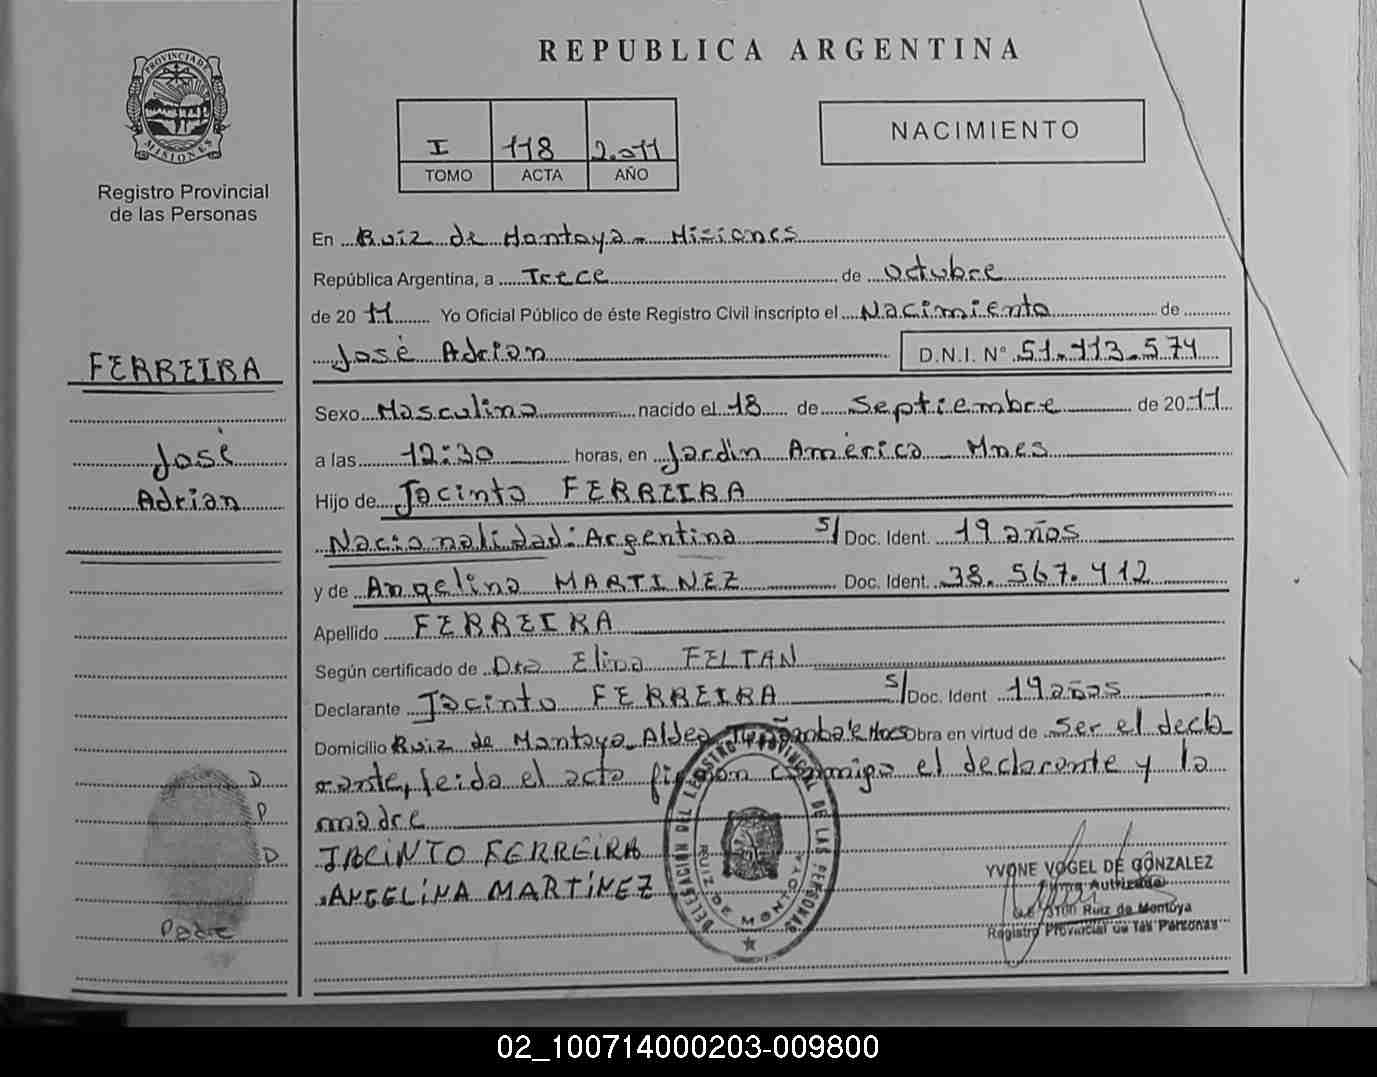 REPUBLICA ARGENTINA
PROVINCIA DE MISIONES
Registro Provincial
de las Personas
I 118 2.011
TOMO ACTA AÑO
NACIMIENTO
En Ruiz de Montoya - Misiones
República Argentina, a Trece de octubre
de 2011 Yo Oficial Público de éste Registro Civil inscripto el Nacimiento de
José Adrian D.N.I. N° 51.113.574
FERREIRA
José
Adrian
Sexo Masculino nacido el 18 de Septiembre de 2011
a las 12:30 horas, en Jardín América Mnes
Hijo de Jacinto FERREIRA
Nacionalidad: Argentina S/ Doc. Ident. 19 años
y de Angelina MARTINEZ Doc. Ident. 38.567.412
Apellido FERREIRA
Según certificado de Dra Elina FELTAN
Declarante Jacinto FERREIRA S/ Doc. Ident 19 años
Domicilio Ruiz de Montoya Aldea Mnes Obra en virtud de Ser el decla
rante, leida el acta firman conmigo el declarante y la
madre
JACINTO FERREIRA
ANGELINA MARTÍNEZ
D
P
D
Padre
DELEGACIÓN DEL REGISTRO PROVINCIAL DE LAS PERSONAS
RUIZ DE MONTOYA
YVONE VOGEL DE GONZALEZ
Firma Autorizada
Ruiz de Montoya
Registro Provincial de las Personas
02_100714000203-009800